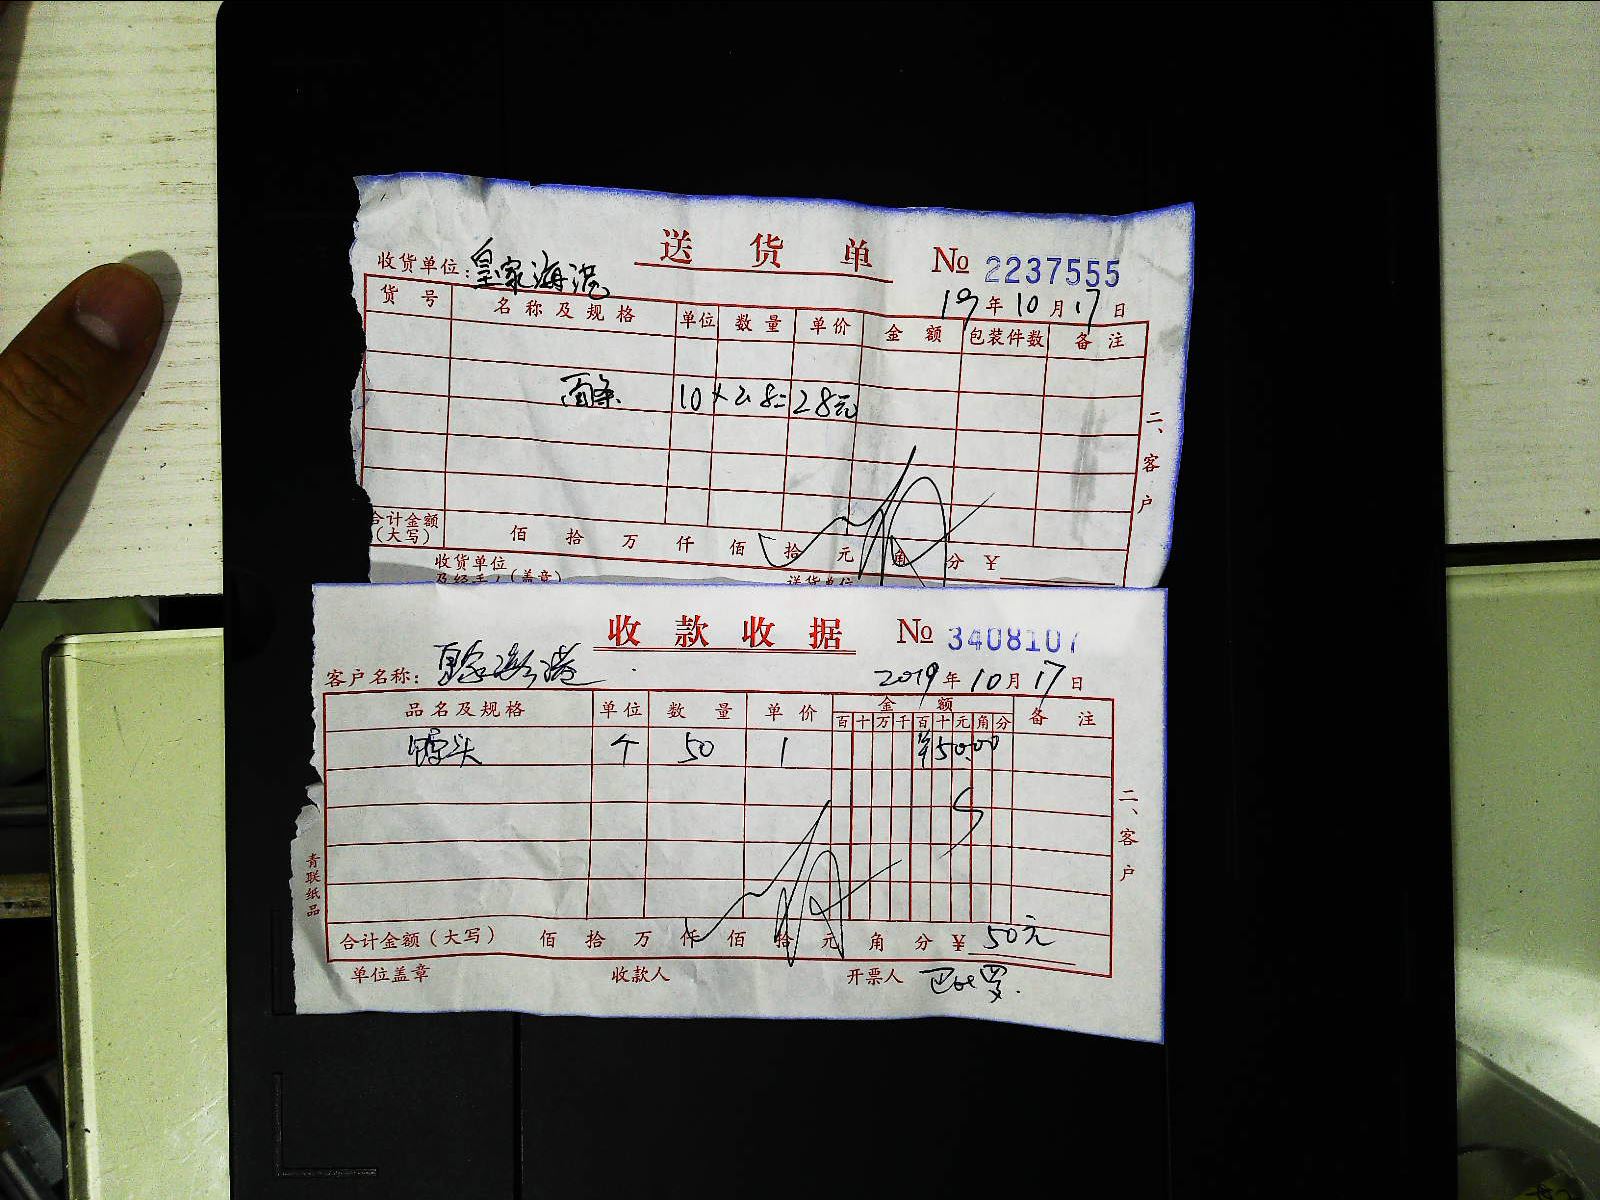 送货单 № 2237555
收货单位：皇家海港
19年10月17日
货号 名称及规格 单位 数量 单价 金额 包装件数 备注
面条 10×2.8=28元
二、客户
合计金额（大写） 佰 拾 万 仟 佰 拾 元 角 分 ¥
收货单位
及经手人（盖章） 送货单位
收款收据 № 3408107
客户名称：皇家海港
2019年10月17日
品名及规格 单位 数量 单价 金额 备注
百十万千百十元角分
馒头 个 50 1 ¥50.00
二、客户
青联纸品
合计金额（大写） 佰 拾 万 仟 佰 拾 元 角 分 ¥ 50元
单位盖章 收款人 开票人